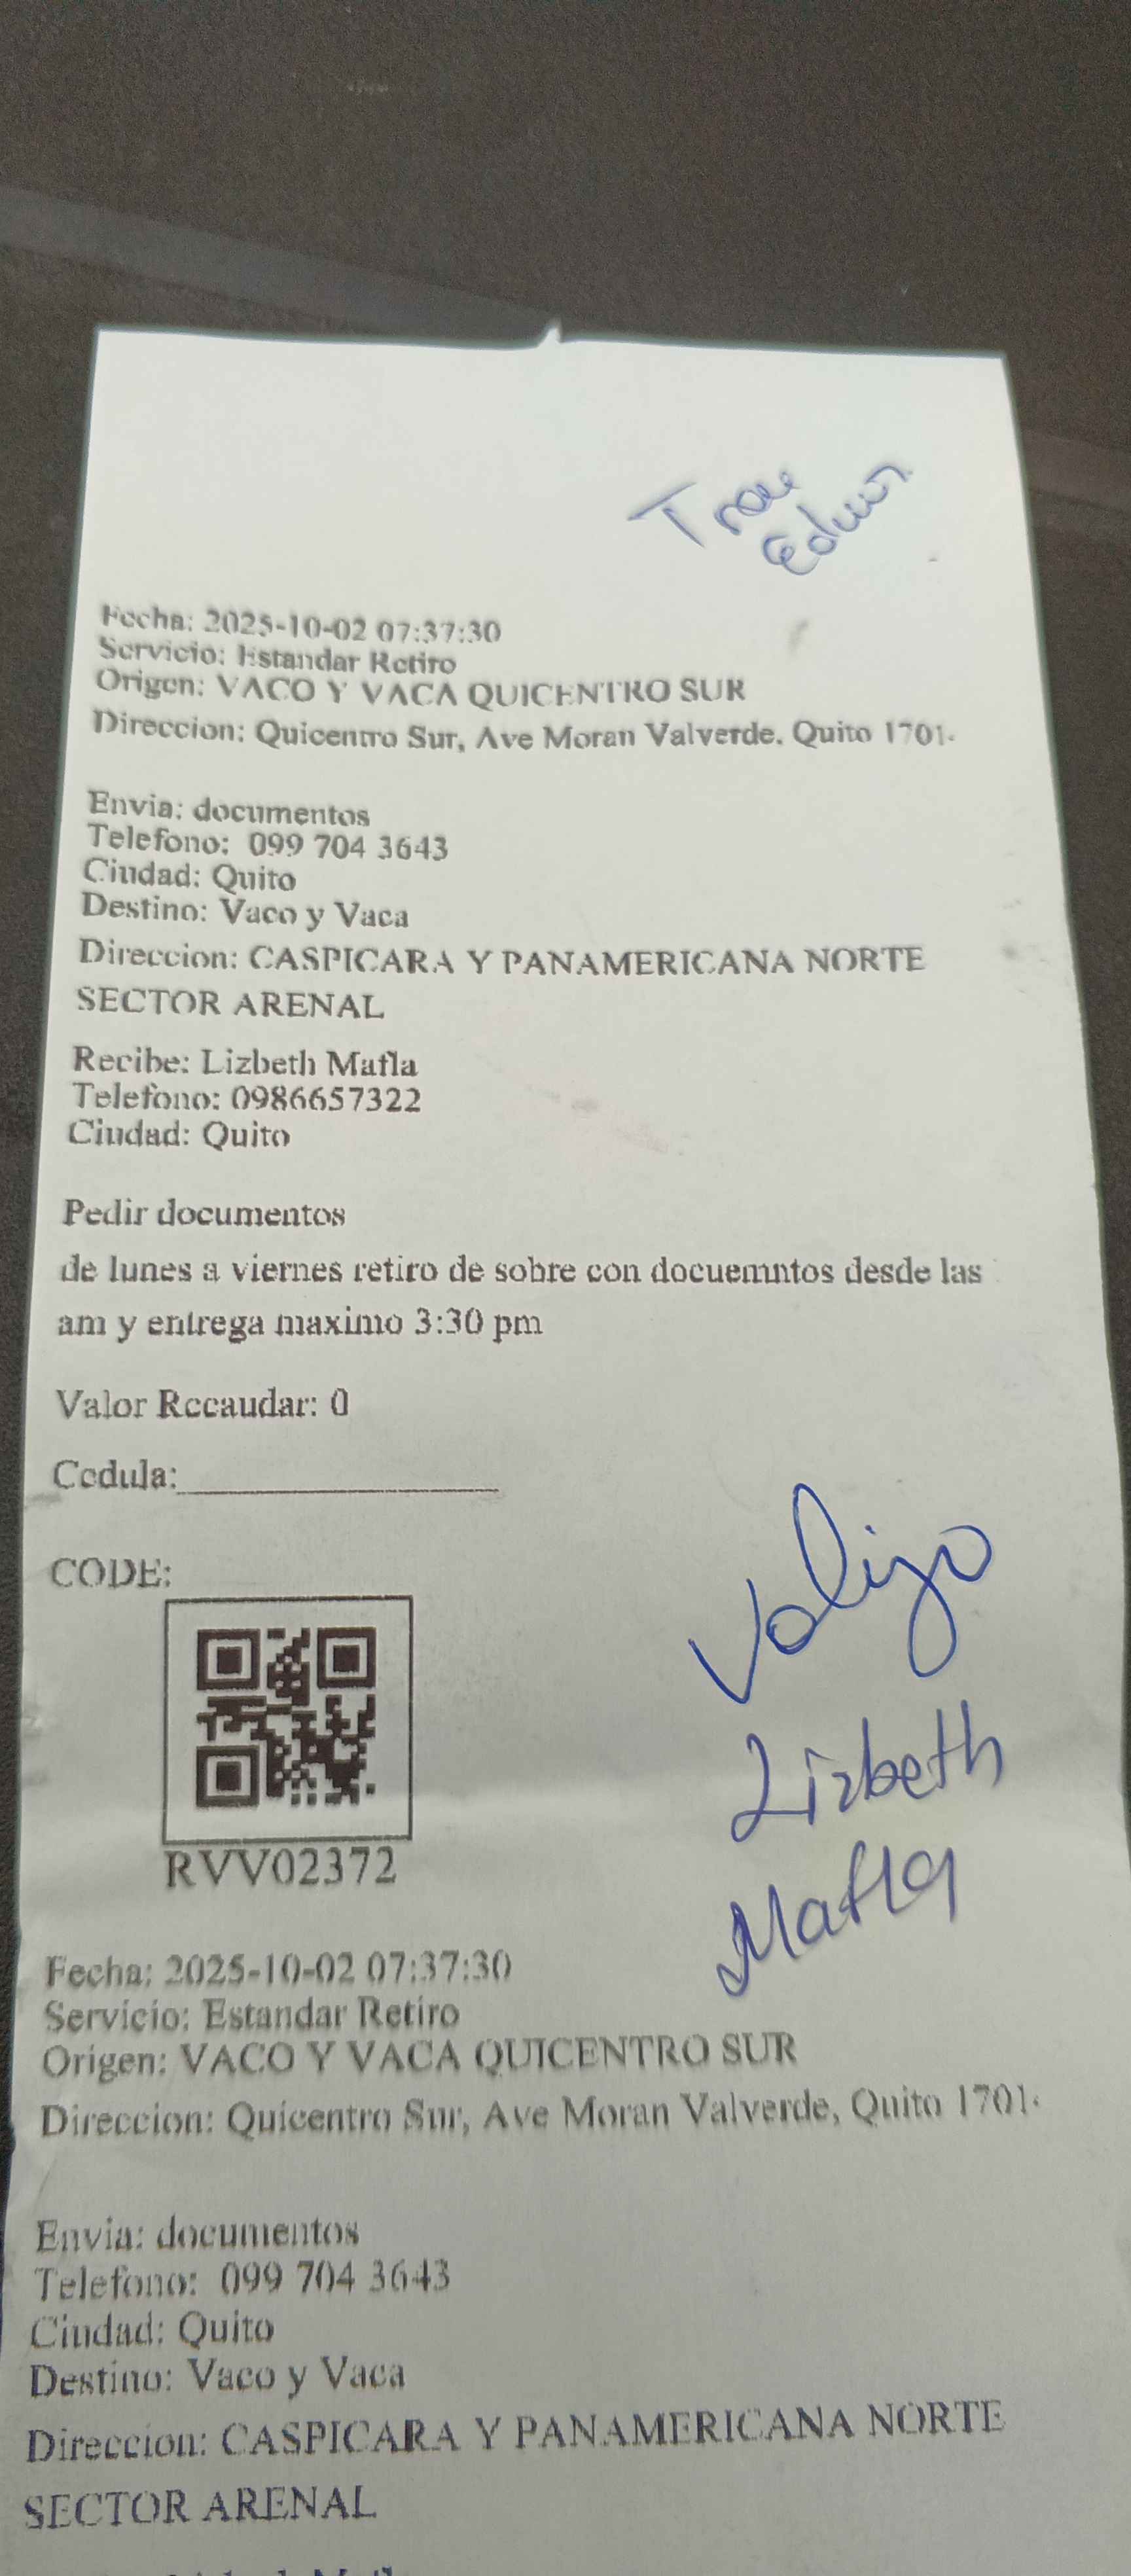 Trae
Fecha: 2025-10-02 07:37:30
Servicio: Estandar Retiro
Origen: VACO Y VACA QUICENTRO SUR
Direccion: Quicentro Sur, Ave Moran Valverde, Quito 1701
Envia: documentos
Telefono: 099 704 3643
Ciudad: Quito
Destino: Vaco y Vaca
Direccion: CASPICARA Y PANAMERICANA NORTE
SECTOR ARENAL
Recibe: Lizbeth Mafla
Telefono: 0986657322
Ciudad: Quito
Pedir documentos
de lunes a viernes retiro de sobre con docuemntos desde las
am y entrega maximo 3:30 pm
Valor Recaudar: 0
Cedula:
CODE:
Valija
Lizbeth
Mafla
RVV02372
Fecha: 2025-10-02 07:37:30
Servicio: Estandar Retiro
Origen: VACO Y VACA QUICENTRO SUR
Direccion: Quicentro Sur, Ave Moran Valverde, Quito 1701
Envia: documentos
Telefono: 099 704 3643
Ciudad: Quito
Destino: Vaco y Vaca
Direccion: CASPICARA Y PANAMERICANA NORTE
SECTOR ARENAL